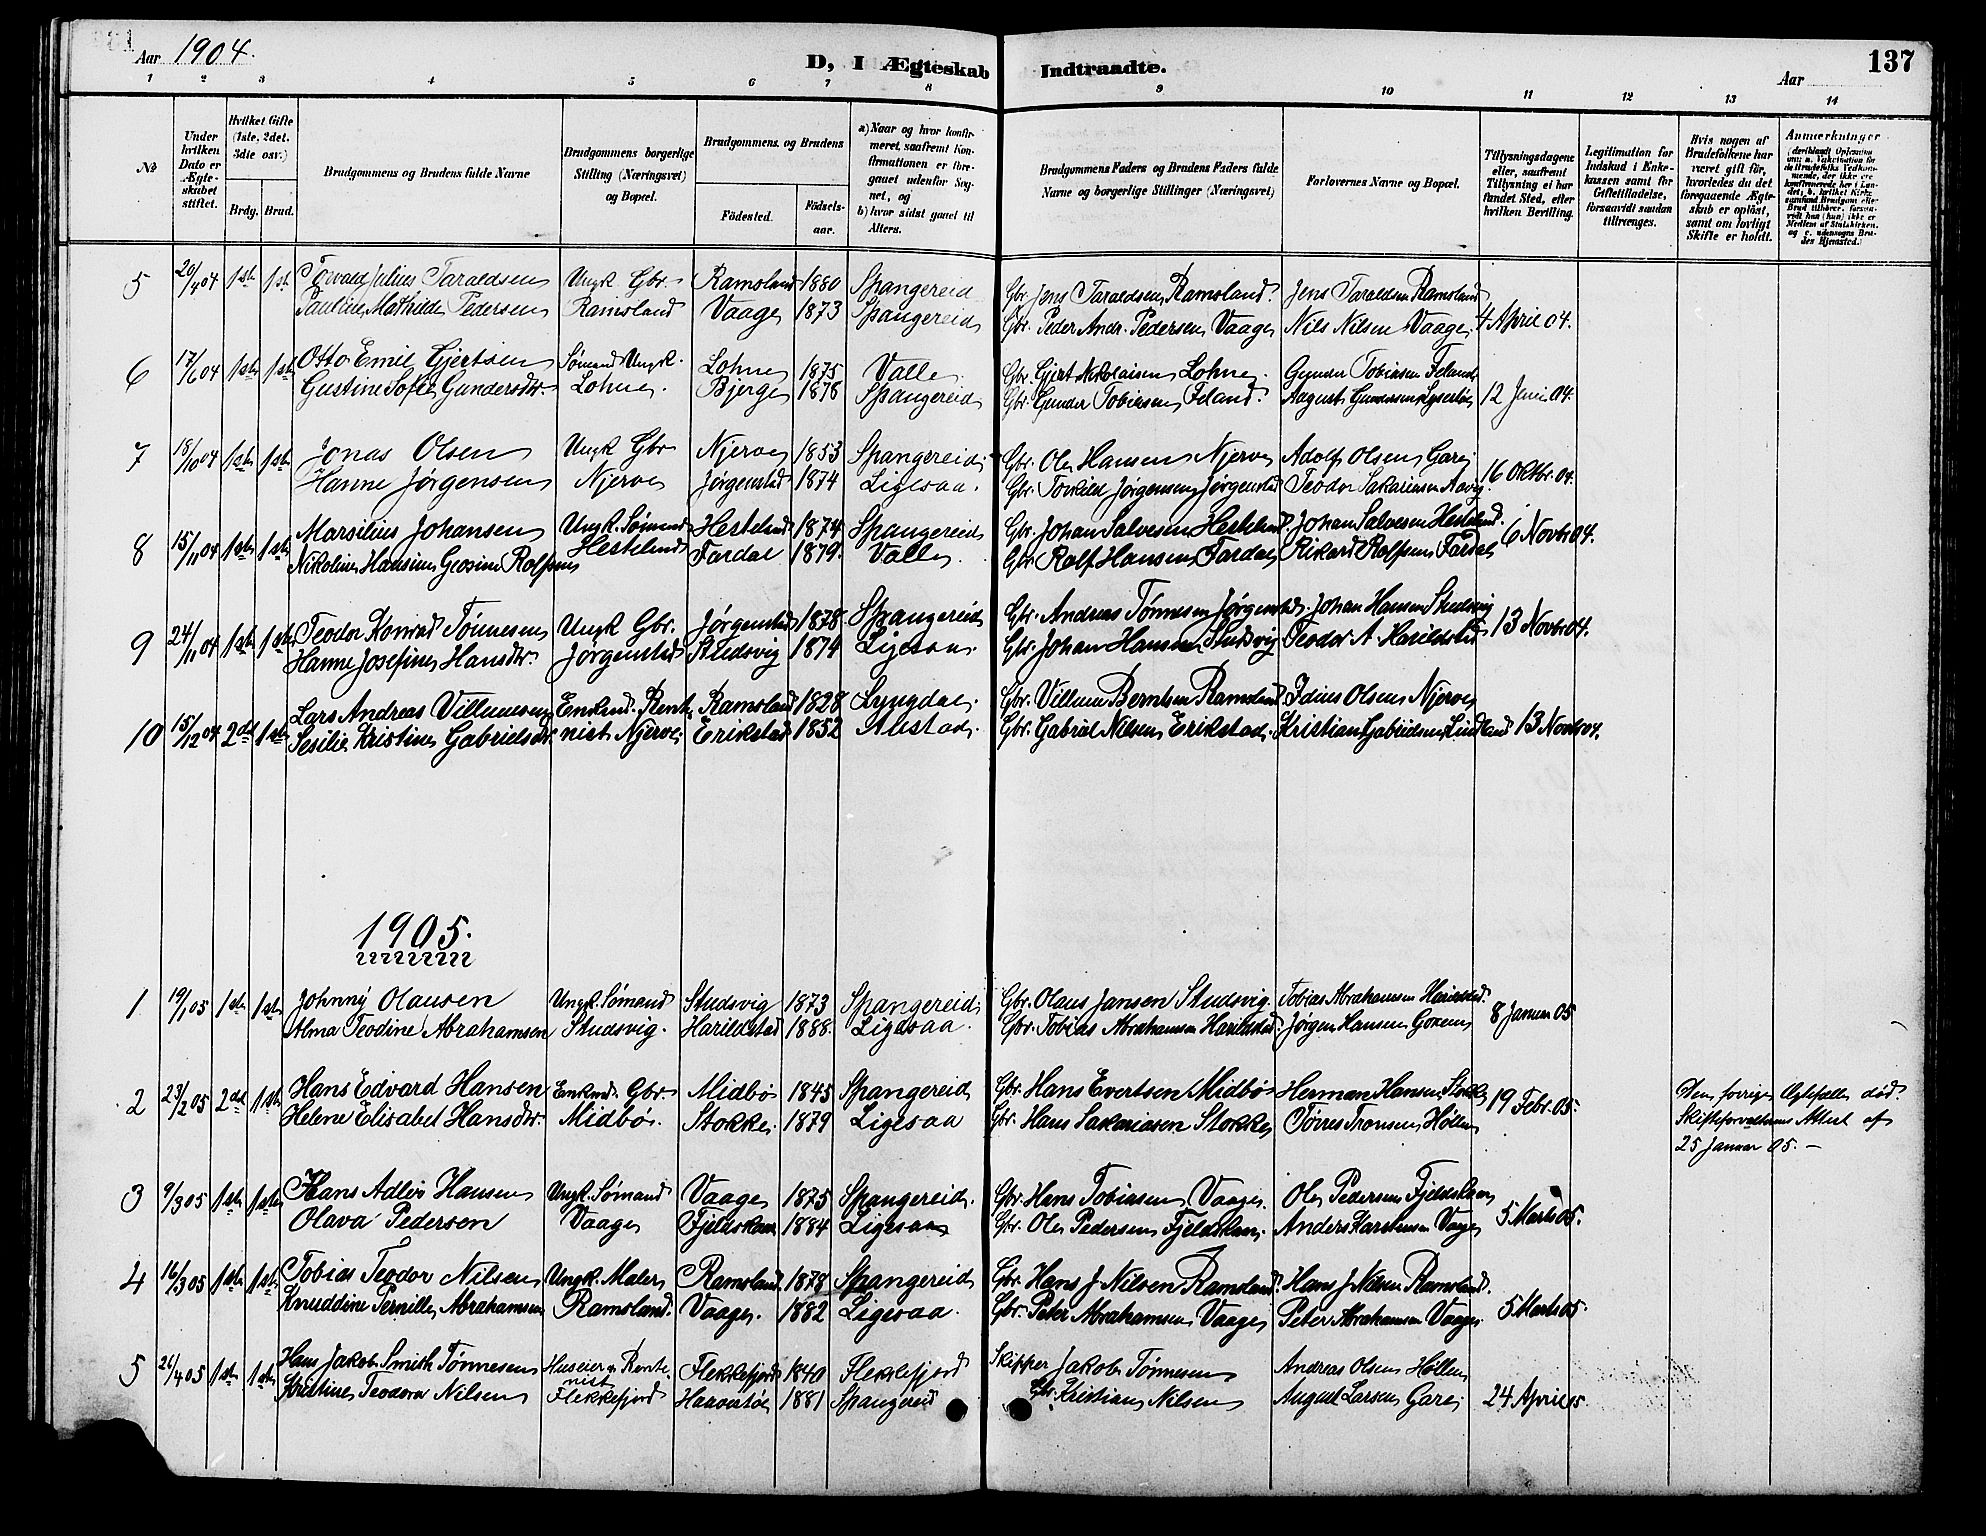 Aar 1904.
D, I Ægteskab Indtraadte.
137
Aar
1 2 3 4 5 6 7 8 9 10 11 12 13 14
No
Under hvilken Dato er Ægteskabet stiftet.
Hvilket Gifte (1ste, 2det, 3die osv.)
Brdg. Brud.
Brudgommens og Brudens fulde Navne
Brudgommens borgerlige Stilling (Næringsvei) og Bopæl.
Brudgommens og Brudens
Fødested. Fødselsaar.
a) Naar og hvor konfirmeret, saafremt Konfirmationen er foregaaet udenfor Sognet, og
b) hvor sidst gaaet til Alters.
Brudgommens Faders og Brudens Faders fulde Navne og borgerlige Stillinger (Næringsvei)
Forlovernes Navne og Bopæl.
Tillysningsdagene eller, saafremt Tillysning ei har fundet Sted, efter hvilken Bevilling.
Legitimation for Indskud i Enkekassen samt for Giftetilladelse, forsaavidt saadan tiltrænges.
Hvis nogen af Brudefolkene har været gift før, hvorledes da det foregaaende Ægteskab er opløst, samt om lovligt Skifte er holdt.
Anmærkninger
5 20/4 04 1ste 1ste Torvald Julius Taraldsen Ungk. Gbr. Ramsland 1880 Spangereid Gbr. Jens Taraldsen Ramsland. Jens Taraldsen Ramsland
Pauline Mathilde Pedersen Ramsland Vaage 1873 Spangereid Gbr. Peder Andr. Pedersen Vaage Nils Nilsen Vaage 4 April 04.
6 17/6 04 1ste 1ste Otto Emil Gjertsen Sømand Ungk. Lohne 1875 Valle Gbr. Gjert Nikolaisen Lohne. Gunder Tobiasen Feland
Gustine Sofie Gundersdtr. Lohne. Bjerge 1878 Spangereid Gbr. Gunder Tobiasen Feland. August Gundersen 12 Juni 04.
7 18/10 04 1ste 1ste Jonas Olsen Ungk Gbr Njerve 1853 Spangereid Gbr. Ole Hansen Njerve Adolf Olsen Gare
Hanne Jørgensen Njerve Jørgenstad 1874 Ligesaa. Gbr. Torkild Jørgensen Jørgenstad Teodor Sakariasen Aavig 16 Oktbr. 04.
8 15/11 04 1ste 1ste Marsilius Johansen Ungk. Sømand Hesteland 1874 Spangereid Gbr. Johan Salvesen Hesteland. Johan Salvesen Hesteland.
Nikoline Hansine Geosine Rolfsen Hesteland Fardal 1879. Valle. Gbr. Rolf Hansen Fardal Rikard Rolfsen Fardal 6 Novbr 04.
9 24/11 04 1ste 1ste Teodor Konrad Tønnesen Ungk Gbr. Jørgenstad 1878 Spangereid Gbr. Andreas Tønnesen Jørgenstad. Johan Hansen Studsvig
Hanne Josefine Hansdtr. Jørgenstad Studsvig 1874 Ligesaa. Gbr. Johan Hansen Studsvig Teodor A Harildstad 13 Novbr 04.
10 15/12 04 2det 1ste Lars Andreas Villumsen Enkemd. Rent- Ramsland 1828 Lyngdal. Gbr. Villum Berntsen Ramsland Edius Olsen Njerve
Sesilie Kristine Gabrielsdtr. nist Njerve. Erikstad 1852 Austad. Gbr. Gabriel Nilsen Erikstad. Kristian Gabrielsen Lindland 13 Novbr 04.
1905.
1 19/1 05 1ste 1ste Johnny Olausen Ungk. Sømand Studsvig 1873 Spangereid Gbr. Olaus Jansen Studsvig. Tobias Abrahamsen Harildstad.
Alma Teodine Abrahamsen Studsvig. Harildstad 1888. Ligesaa. Gbr. Tobias Abrahamsen Harildstad. Jørgen Hansen Goxem 8 Januar 05
2 23/2 05 2det 1ste Hans Edvard Hansen Enkemd. Gbr. Midbø 1845 Spangereid Gbr. Hans Evertsen Midbø Herman Hansen Stokke
Helene Elisabet Hansdtr. Midbø. Stokke. 1879 Ligesaa Gbr. Hans Sakariasen Stokke Tørres Tronsen Høllen 19 Febr. 05.
Den forrige Ægtefælle død.
Skifteforvalterens Attest af
25 Januar 05. –
3 9/3 05 1ste 1ste Hans Adler Hansen Ungk. Sømand Vaage 1875 Spangereid. Gbr. Hans Tobiasen Vaage. Ole Pedersen Fjeldskaar
Olava Pedersen Vaage Fjeldskaar 1884 Ligesaa Gbr. Ole Pedersen Fjeldskaar. Anders Karstensen Vaage 5 Marts 05.
4 16/3 05 1ste 1ste Tobias Teodor Nilsen Ungk. Maler Ramsland 1878 Spangereid Gbr. Hans J Nilsen Ramsland. Hans J Nilsen Ramsland.
Knuddine Pernille Abrahamsen Ramsland. Vaage. 1882 Ligesaa. Gbr. Peter Abrahamsen Vaage Peter Abrahamsen Vaage 5 Marts 05.
5 26/4 05 1ste 1ste Hans Jakob Smith Tønnesen Huseier og Rente- Flekkefjord 1840 Flekkefjord Skipper Jakob Tønnesen Andreas Olsen Høllen
nist
Kristine Teodora Nilsen Flekkefjord Haaverstøl 1881 Spangereid Gbr. Kristian Nilsen August Larsen Gare 24 April 05